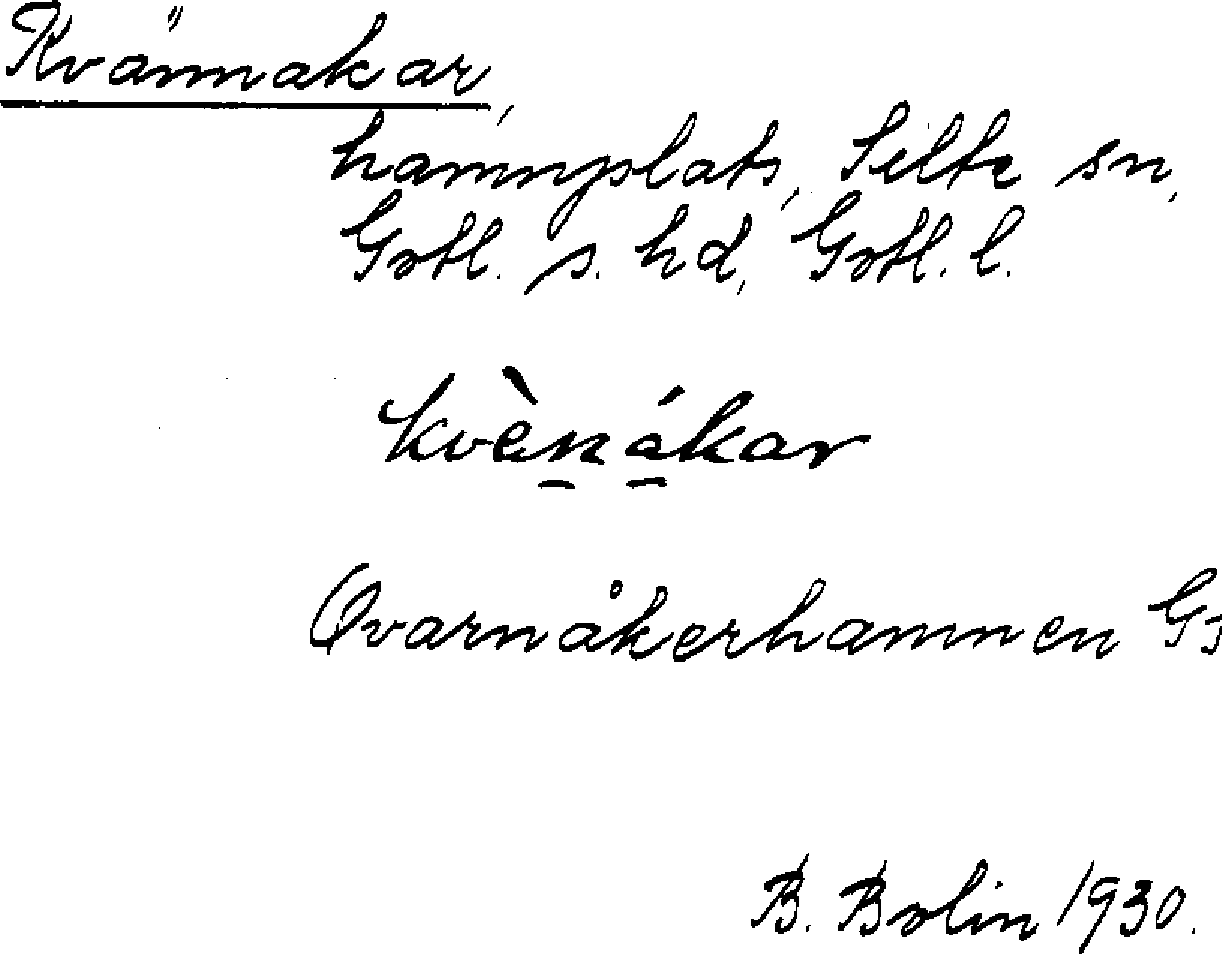 Kvännakar,
hamnplats, Silte sn,
Gotl. s. hd, Gotl. l.
kvènákar
Qvarnåkerhamnen
B. Bolin 1930.